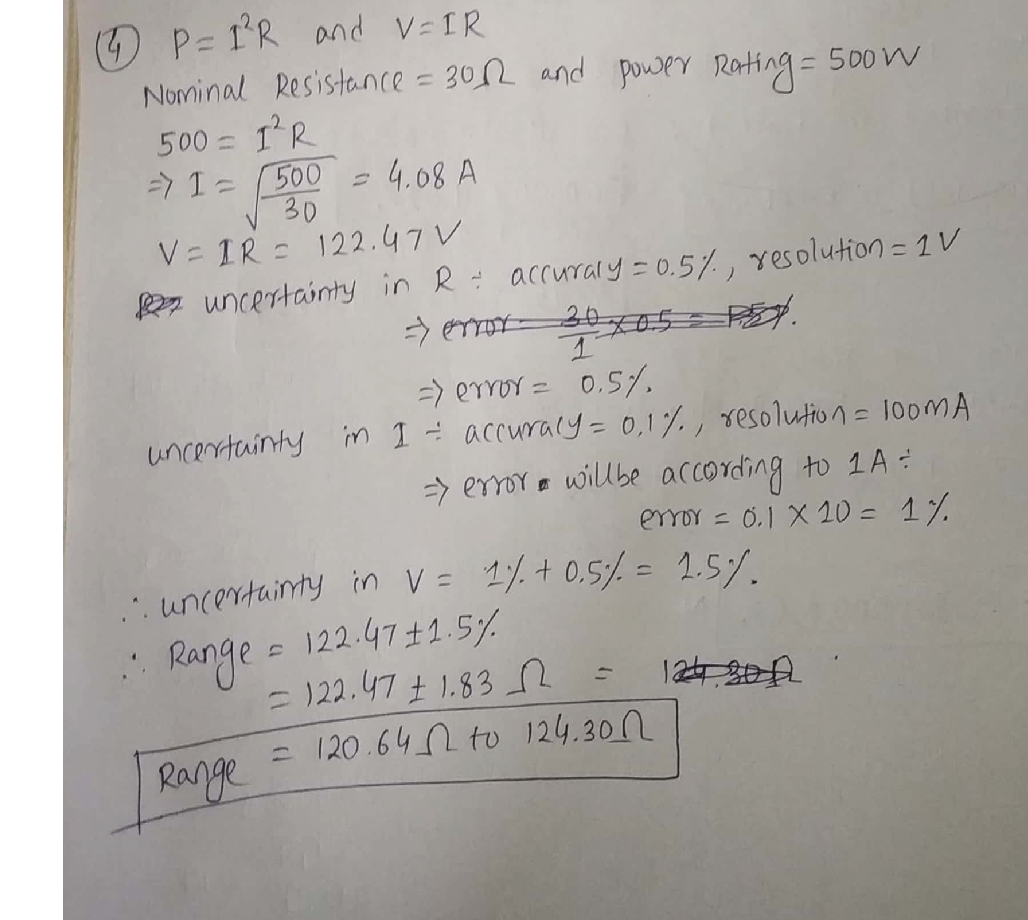 ④ P = I²R and V = IR
Nominal Resistance = 30Ω and power Rating = 500W
500 = I²R
⇒ I = √(500/30) = 4.08 A
V = IR = 122.47 V
uncertainty in R ÷ accuraly = 0.5%, resolution = 1V
⇒ error 30/1 × 0.5 =
⇒ error = 0.5%.
uncertainty in I ÷ accuracy = 0.1%, resolution = 100mA
⇒ error willbe according to 1A ÷
error = 0.1 × 10 = 1%.
∴ uncertainty in V = 1% + 0.5% = 1.5%.
∴ Range = 122.47 ± 1.5%
= 122.47 ± 1.83 Ω = 124.30Ω
Range = 120.64Ω to 124.30Ω